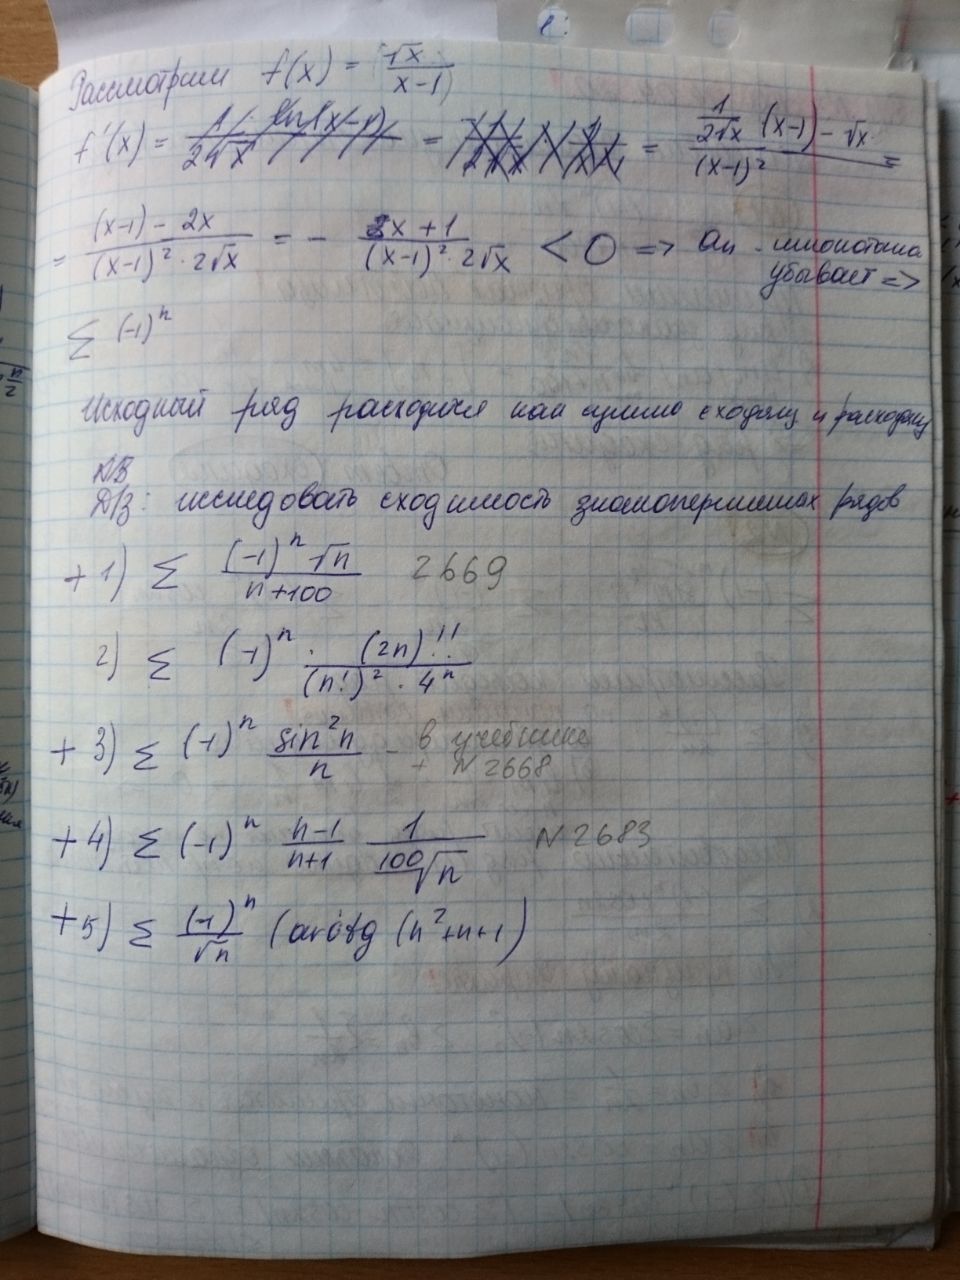 Рассмотрим f(x) = √x / (x-1)
f'(x) = = = (1/(2√x) (x-1) - √x) / (x-1)² =
= ((x-1) - 2x) / ((x-1)² · 2√x) = - (x+1) / ((x-1)² · 2√x) < 0 => an - монотонно
убывает =>
Σ (-1)ⁿ
Исходный ряд расходится как сумма сходящ и расходящ
Д/З: исследовать сходимость знакопеременных рядов
+ 1) Σ (-1)ⁿ √n / (n+100) 2669
2) Σ (-1)ⁿ · (2n)!! / ((n!)² · 4ⁿ)
+ 3) Σ (-1)ⁿ sin²n / n - в учебнике
+ N 2668
+ 4) Σ (-1)ⁿ (n-1)/(n+1) 1/¹⁰⁰√n N 2683
+ 5) Σ (-1)ⁿ/√n (arctg (n²+n+1)